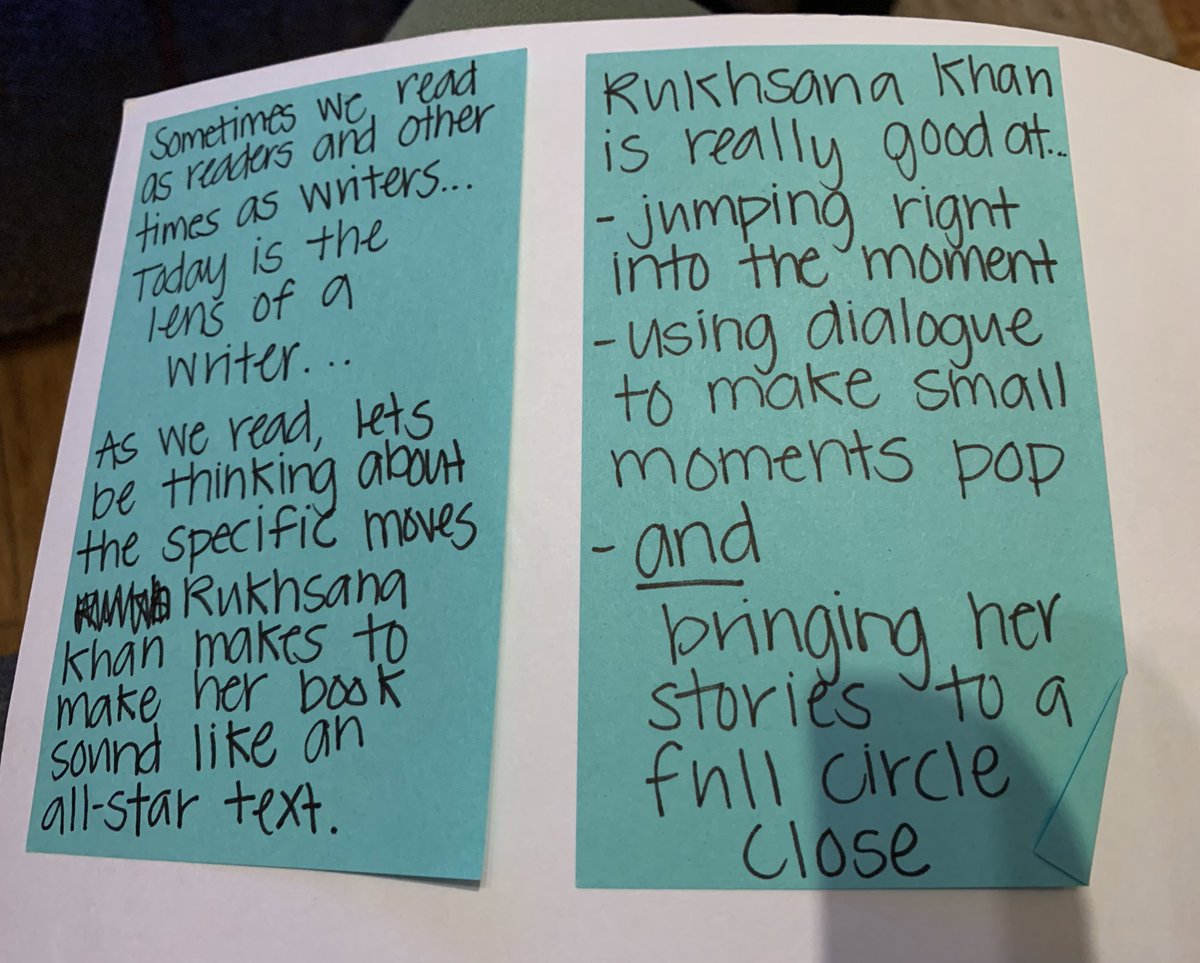 Sometimes we read
as readers and other
times as writers...
Today is the
lens of a
writer...
As we read, lets
be thinking about
the specific moves
Rukhsana
Khan makes to
make her book
sound like an
all-star text.
Rukhsana Khan
is really good at...
- jumping right
into the moment
- using dialogue
to make small
moments pop
- and
bringing her
stories to a
full circle
close